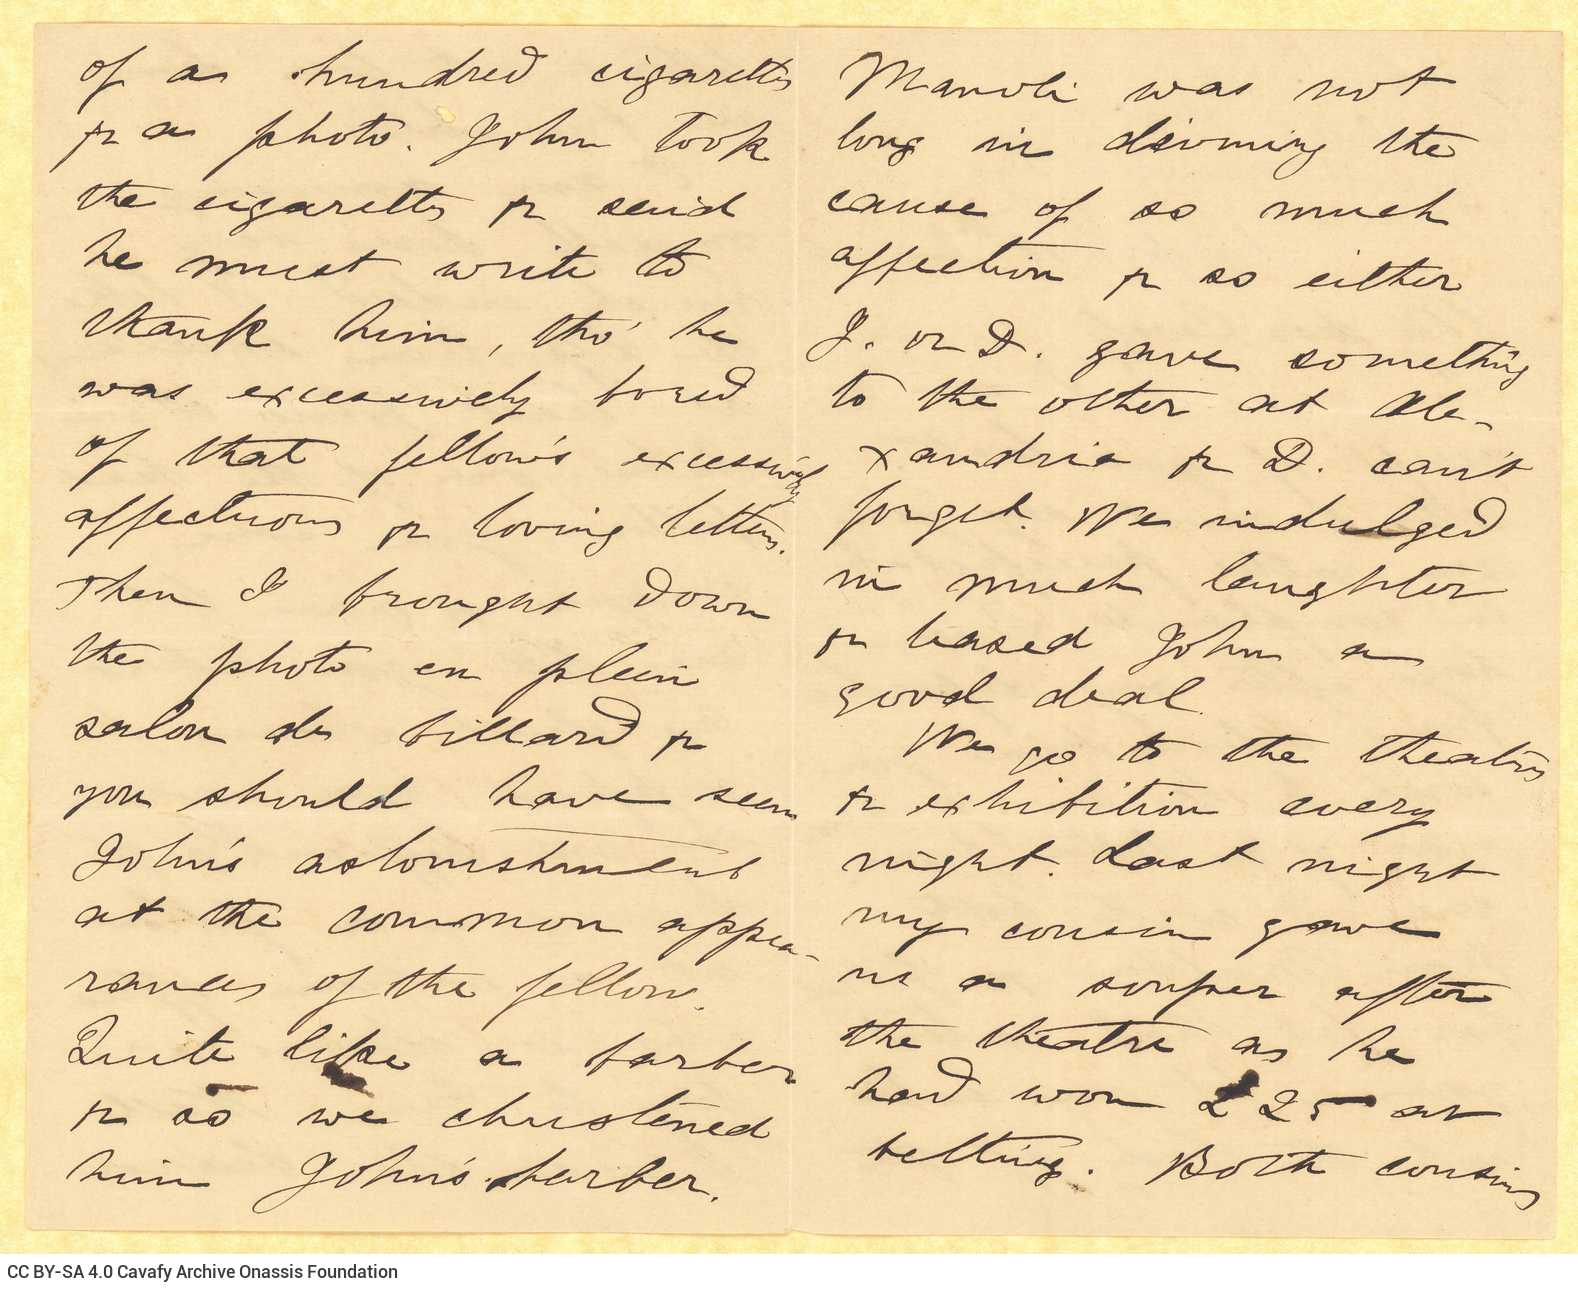 of a hundred cigarettes
& a photo. John took
the cigarettes & said
he must write to
thank him, tho' he
was excessively bored
of that fellow's excessively
affectuous & loving letters.
Then I brought down
the photo en plein
salon de billard &
you should have seen
John's astonishment
at the common appea-
rances of the fellow.
Quite like a barber
& so we christened
him John's barber.
Manoli was not
long in divining the
cause of so much
affection & so either
J. or D. gave something
to the other at Ale-
xandria & D. can't
forget. We indulged
in much laughter
& teased John a
good deal.
We go to the theatres
& exhibition every
night. Last night
my cousin gave
us a souper after
the theatre as he
had won £25 at
betting. Both cousins
CC BY-SA 4.0 Cavafy Archive Onassis Foundation